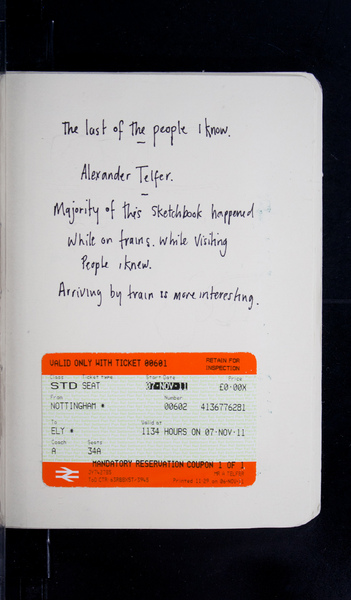 The last of the people I know.
Alexander Telfer.
Majority of this sketchbook happened
While on trains. While Visiting
People i knew.
Arriving by train is more interesting.
VALID ONLY WITH TICKET 00601
RETAIN FOR
INSPECTION
Class Ticket type Start Date Price
STD SEAT 07·NOV·11 £0·00X
From Number
NOTTINGHAM * 00602 4136776281
To Valid at
ELY * 1134 HOURS ON 07·NOV·11
Coach Seats
A 34A
MANDATORY RESERVATION COUPON 1 OF 1
MR A TELFER
Printed 11